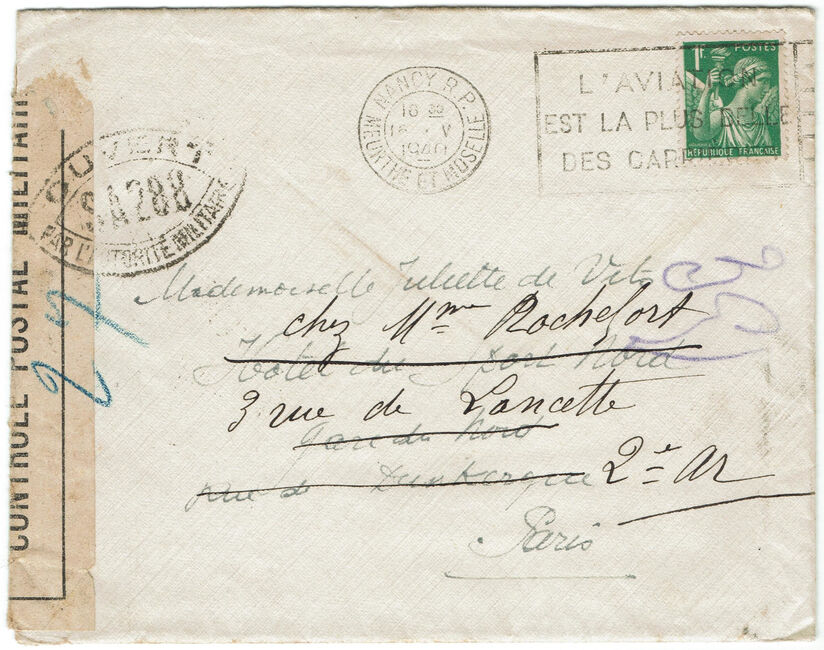 CONTRÔLE POSTAL MILITAIRE
OUVERT
SA288
PAR L'AUTORITÉ MILITAIRE
NANCY R.P.
18 32
V
1940
MEURTHE ET MOSELLE
L'AVIATION
EST LA PLUS BELLE
DES CARR
1F
POSTES
RÉPUBLIQUE FRANÇAISE
Mademoiselle Juliette de
chez Mme Rochefort
Hôtel du Nord
3 rue de Lancette
Gare du Nord
rue de Dunkerque 2e Ar
Paris